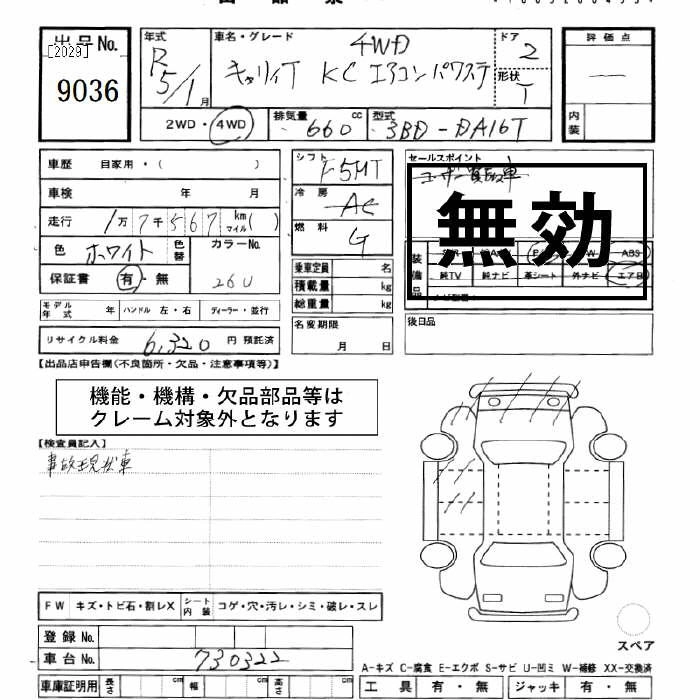 出品No. [2029] 9036
年式 R5/1月
車名・グレード 4WD
キャリィT KC エアコン パワステ
ドア 2
形状 T
評価点 —
内装
2WD・4WD
排気量 660 cc
型式 3BD-DA16T
車歴 自家用・( )
車検 年 月
走行 1万7千567 km マイル ( )
色 ホワイト 色替 カラーNo. 26U
保証書 有・無
モデル年式 年 ハンドル 左・右 ディーラー・並行
リサイクル料金 6,320 円 預託済
シフト F5MT
冷房 AC
燃料 G
乗車定員 名
積載量 kg
総重量 kg
名変期限
月 日
セールスポイント
ユーザー買取車
無効
ABS
純TV 純ナビ 革シート 外ナビ エアB
後日品
【出品店申告欄(不良箇所・欠品・注意事項等)】
機能・機構・欠品部品等は
クレーム対象外となります
【検査員記入】
事故現状車
FW キズ・トビ石・割レX シート内装 コゲ・穴・汚レ・シミ・破レ・スレ
登録No.
車台No. 730322
車庫証明用 長さ cm 幅 cm 高さ cm
スペア
A-キズ C-腐食 E-エクボ S-サビ U-凹ミ W-補修 XX-交換済
工具 有・無 ジャッキ 有・無